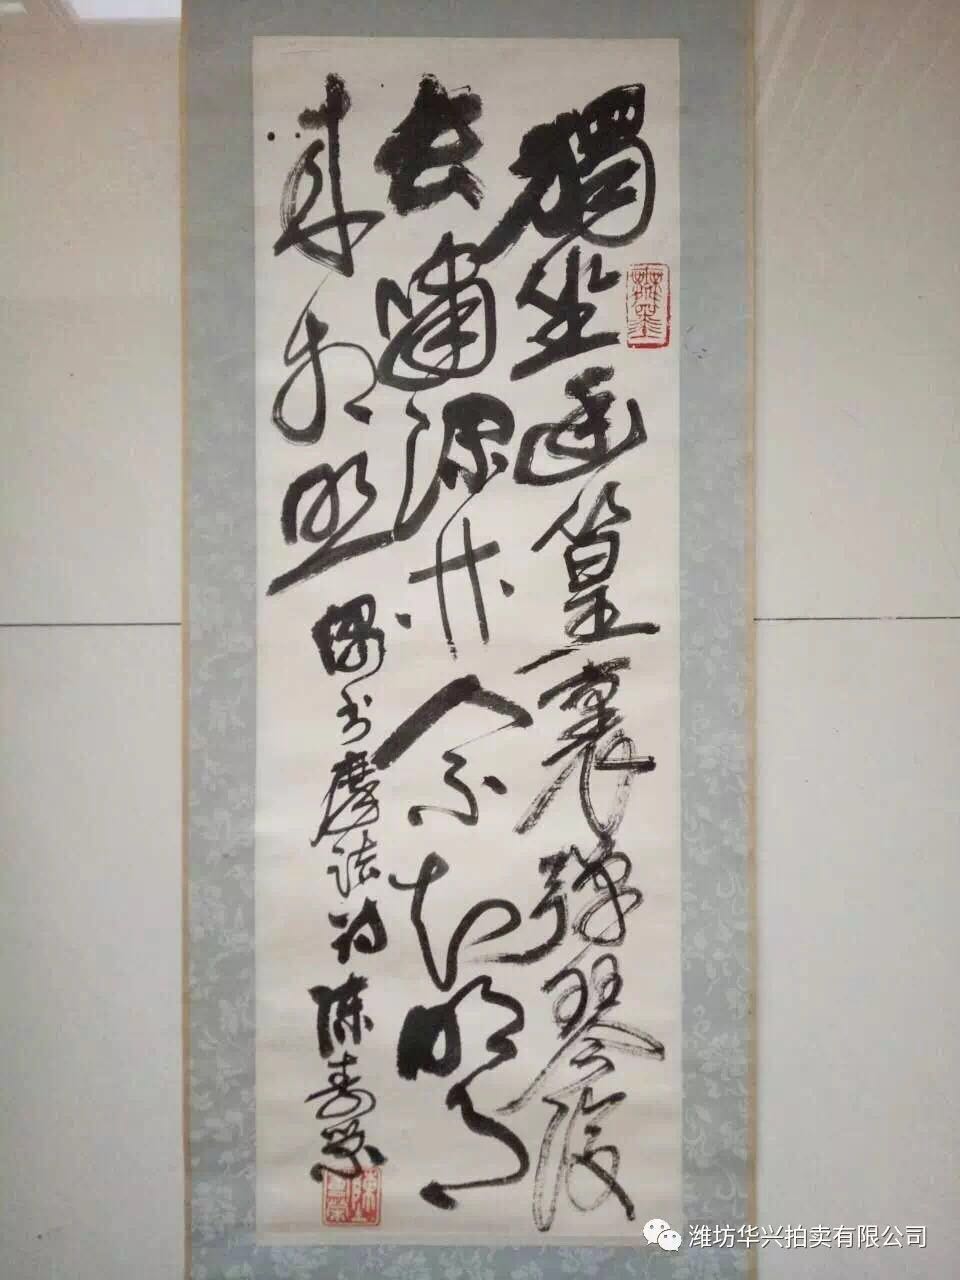 獨坐幽篁裏彈琴復
长嘯深林人不知明月
來相照
偶书摩詰詩 陳壽榮
潍坊华兴拍卖有限公司